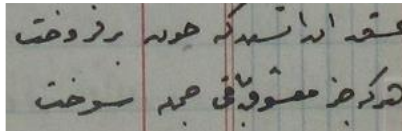 عشق آن شعله‌ست که چون برفروخت
هر که جز معشوق باقی جمله سوخت